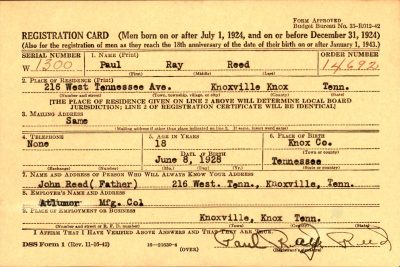 FORM APPROVED
Budget Bureau No. 33-R012-42
REGISTRATION CARD (Men born on or after July 1, 1924, and on or before December 31, 1924)
(Also for the registration of men as they reach the 18th anniversary of the date of their birth on or after January 1, 1943.)
SERIAL NUMBER
1. NAME (Print)
ORDER NUMBER
W 1300
Paul Ray Reed
14692
(First) (Middle) (Last)
2. PLACE OF RESIDENCE (Print)
216 West Tennessee Ave. Knoxville Knox Tenn.
(Number and street) (Town, township, village, or city) (County) (State)
[THE PLACE OF RESIDENCE GIVEN ON LINE 2 ABOVE WILL DETERMINE LOCAL BOARD
JURISDICTION; LINE 2 OF REGISTRATION CERTIFICATE WILL BE IDENTICAL]
3. MAILING ADDRESS
Same
(Mailing address if other than place indicated on line 2. If same, insert word same)
4. TELEPHONE
5. AGE IN YEARS
6. PLACE OF BIRTH
None
18
Knox Co.
DATE OF BIRTH
(Town or county)
June 8, 1928
Tennessee
(Exchange) (Number)
(Mo.) (Day) (Yr.)
(State or country)
7. NAME AND ADDRESS OF PERSON WHO WILL ALWAYS KNOW YOUR ADDRESS
John Reed( Father) 216 West. Tenn., Knoxville, Tenn.
8. EMPLOYER'S NAME AND ADDRESS
Mfg. Col
9. PLACE OF EMPLOYMENT OR BUSINESS
Knoxville, Knox Tenn.
(Number and street or R. F. D. number) (Town) (County) (State)
I AFFIRM THAT I HAVE VERIFIED ABOVE ANSWERS AND THAT THEY ARE TRUE.
DSS Form 1 (Rev. 11-16-42)
(OVER)
Paul Ray Reed
(Registrant's signature)